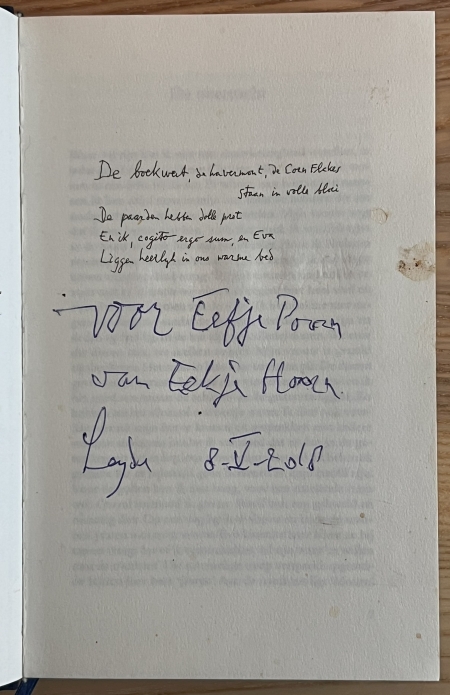 De boekweit, de havermout, de Corn Flakes
staan in volle bloei
De paarden hebben dolle pret
En ik, cogito ergo sum, en Eva
Liggen heerlijk in ons warme bed
voor Eefje Poorn
van Eekje Hoorn
Leyden 8-V-2018